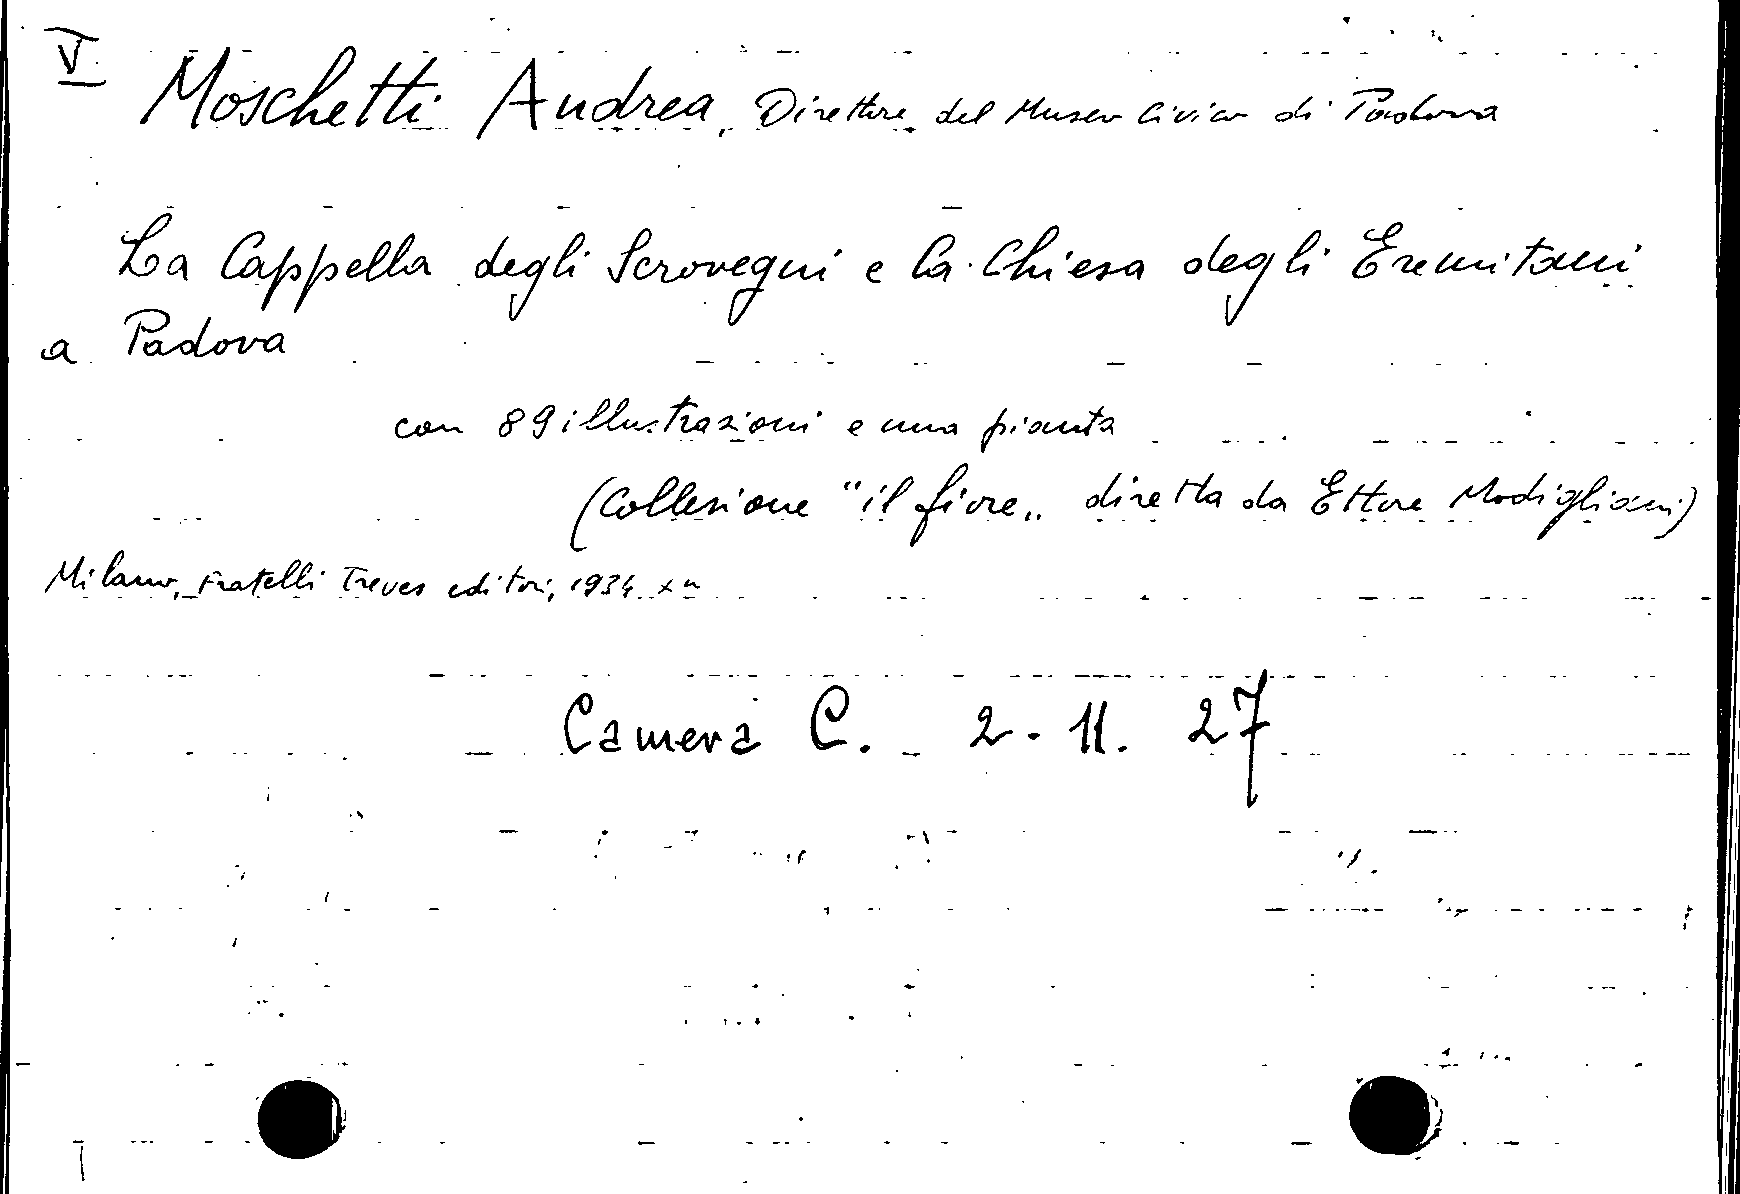 V
Moschetti Andrea, Direttore del Museo Civico di Padova
La Cappella degli Scrovegni e la Chiesa degli Eremitani
a Padova
con 89 illustrazioni e una pianta
(Collezione "il fiore„ diretta da Ettore Modigliani)
Milano, Fratelli Treves editori, 1934 XII
Camera C. 2-11. 27